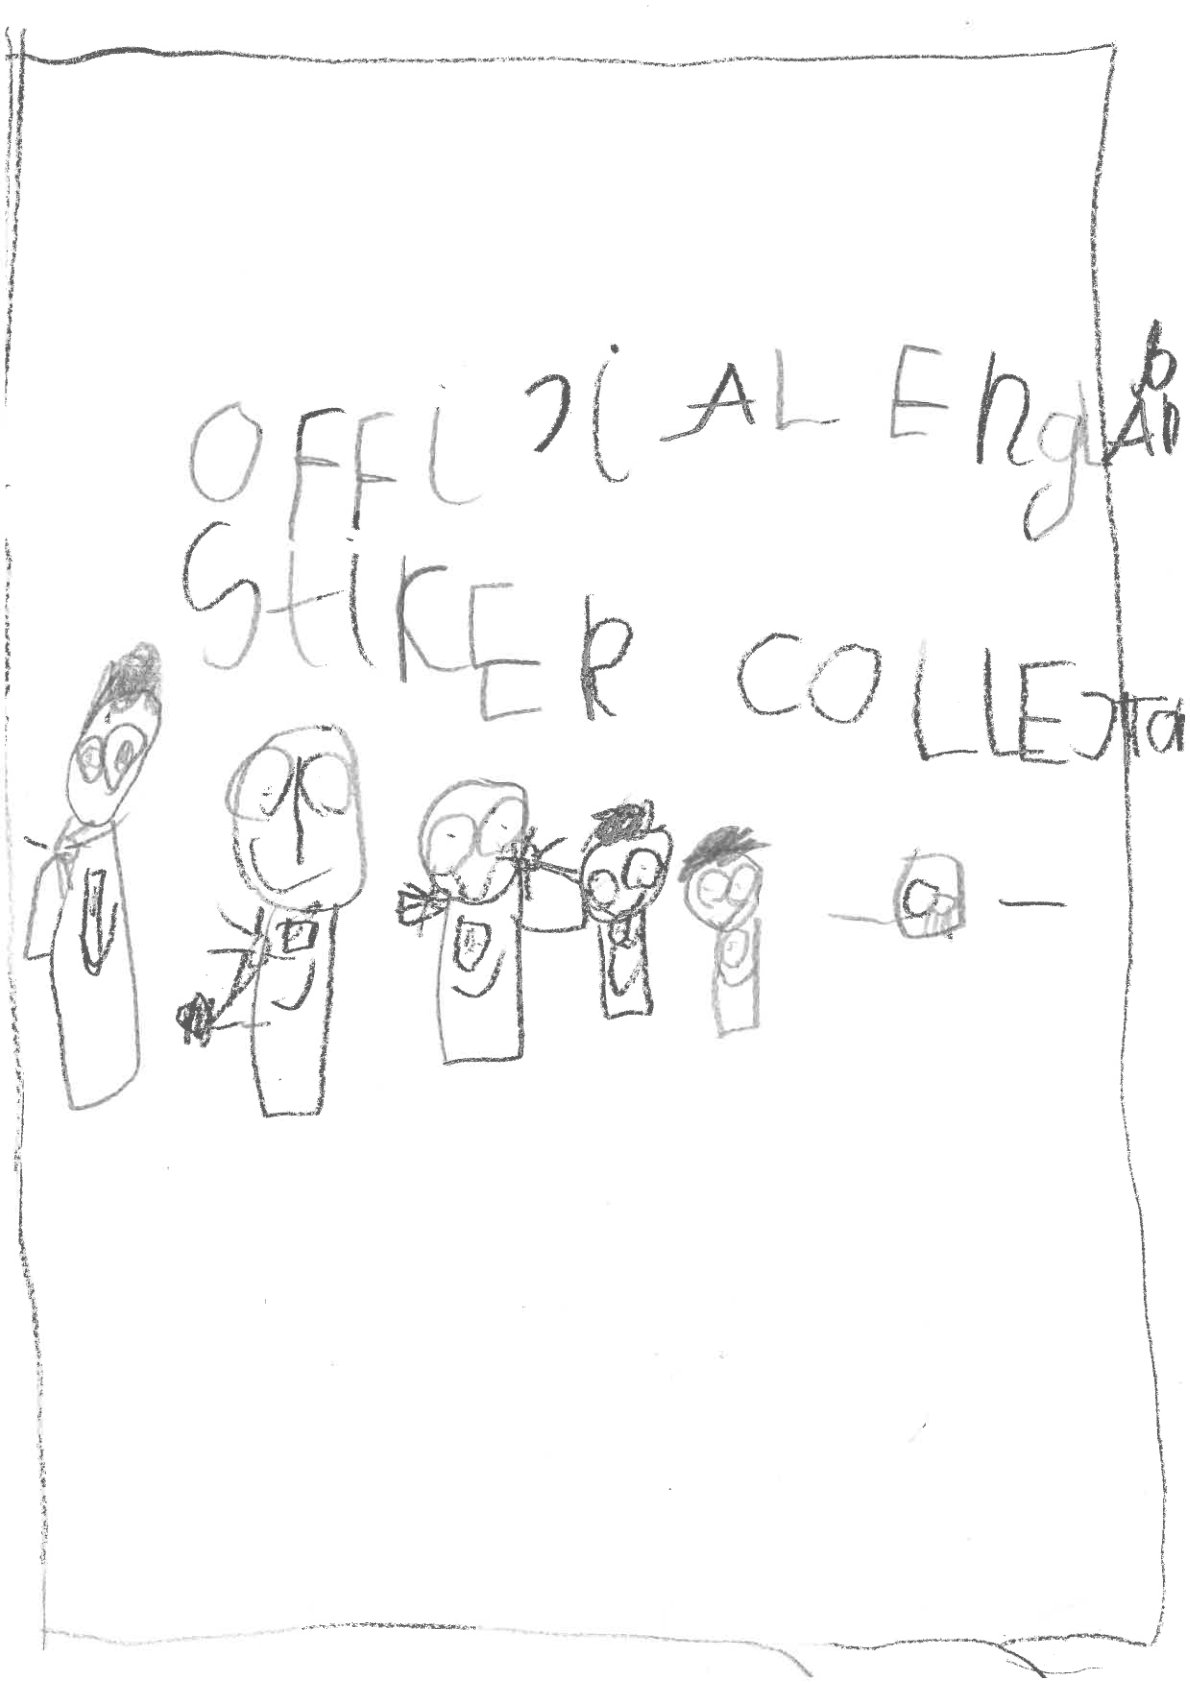 OFFICIAL ENgLAnD
StIKER COLLECTO